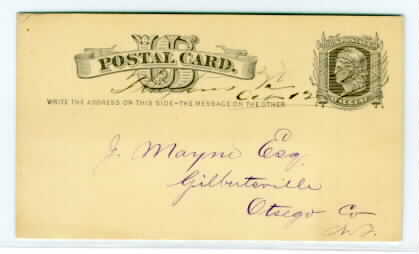 US
POSTAL CARD.
Oct 12
WRITE THE ADDRESS ON THIS SIDE-THE MESSAGE ON THE OTHER
ONE CENT
J. Mayne Esq.
Gilbertsville
Otsego Co
N.Y.